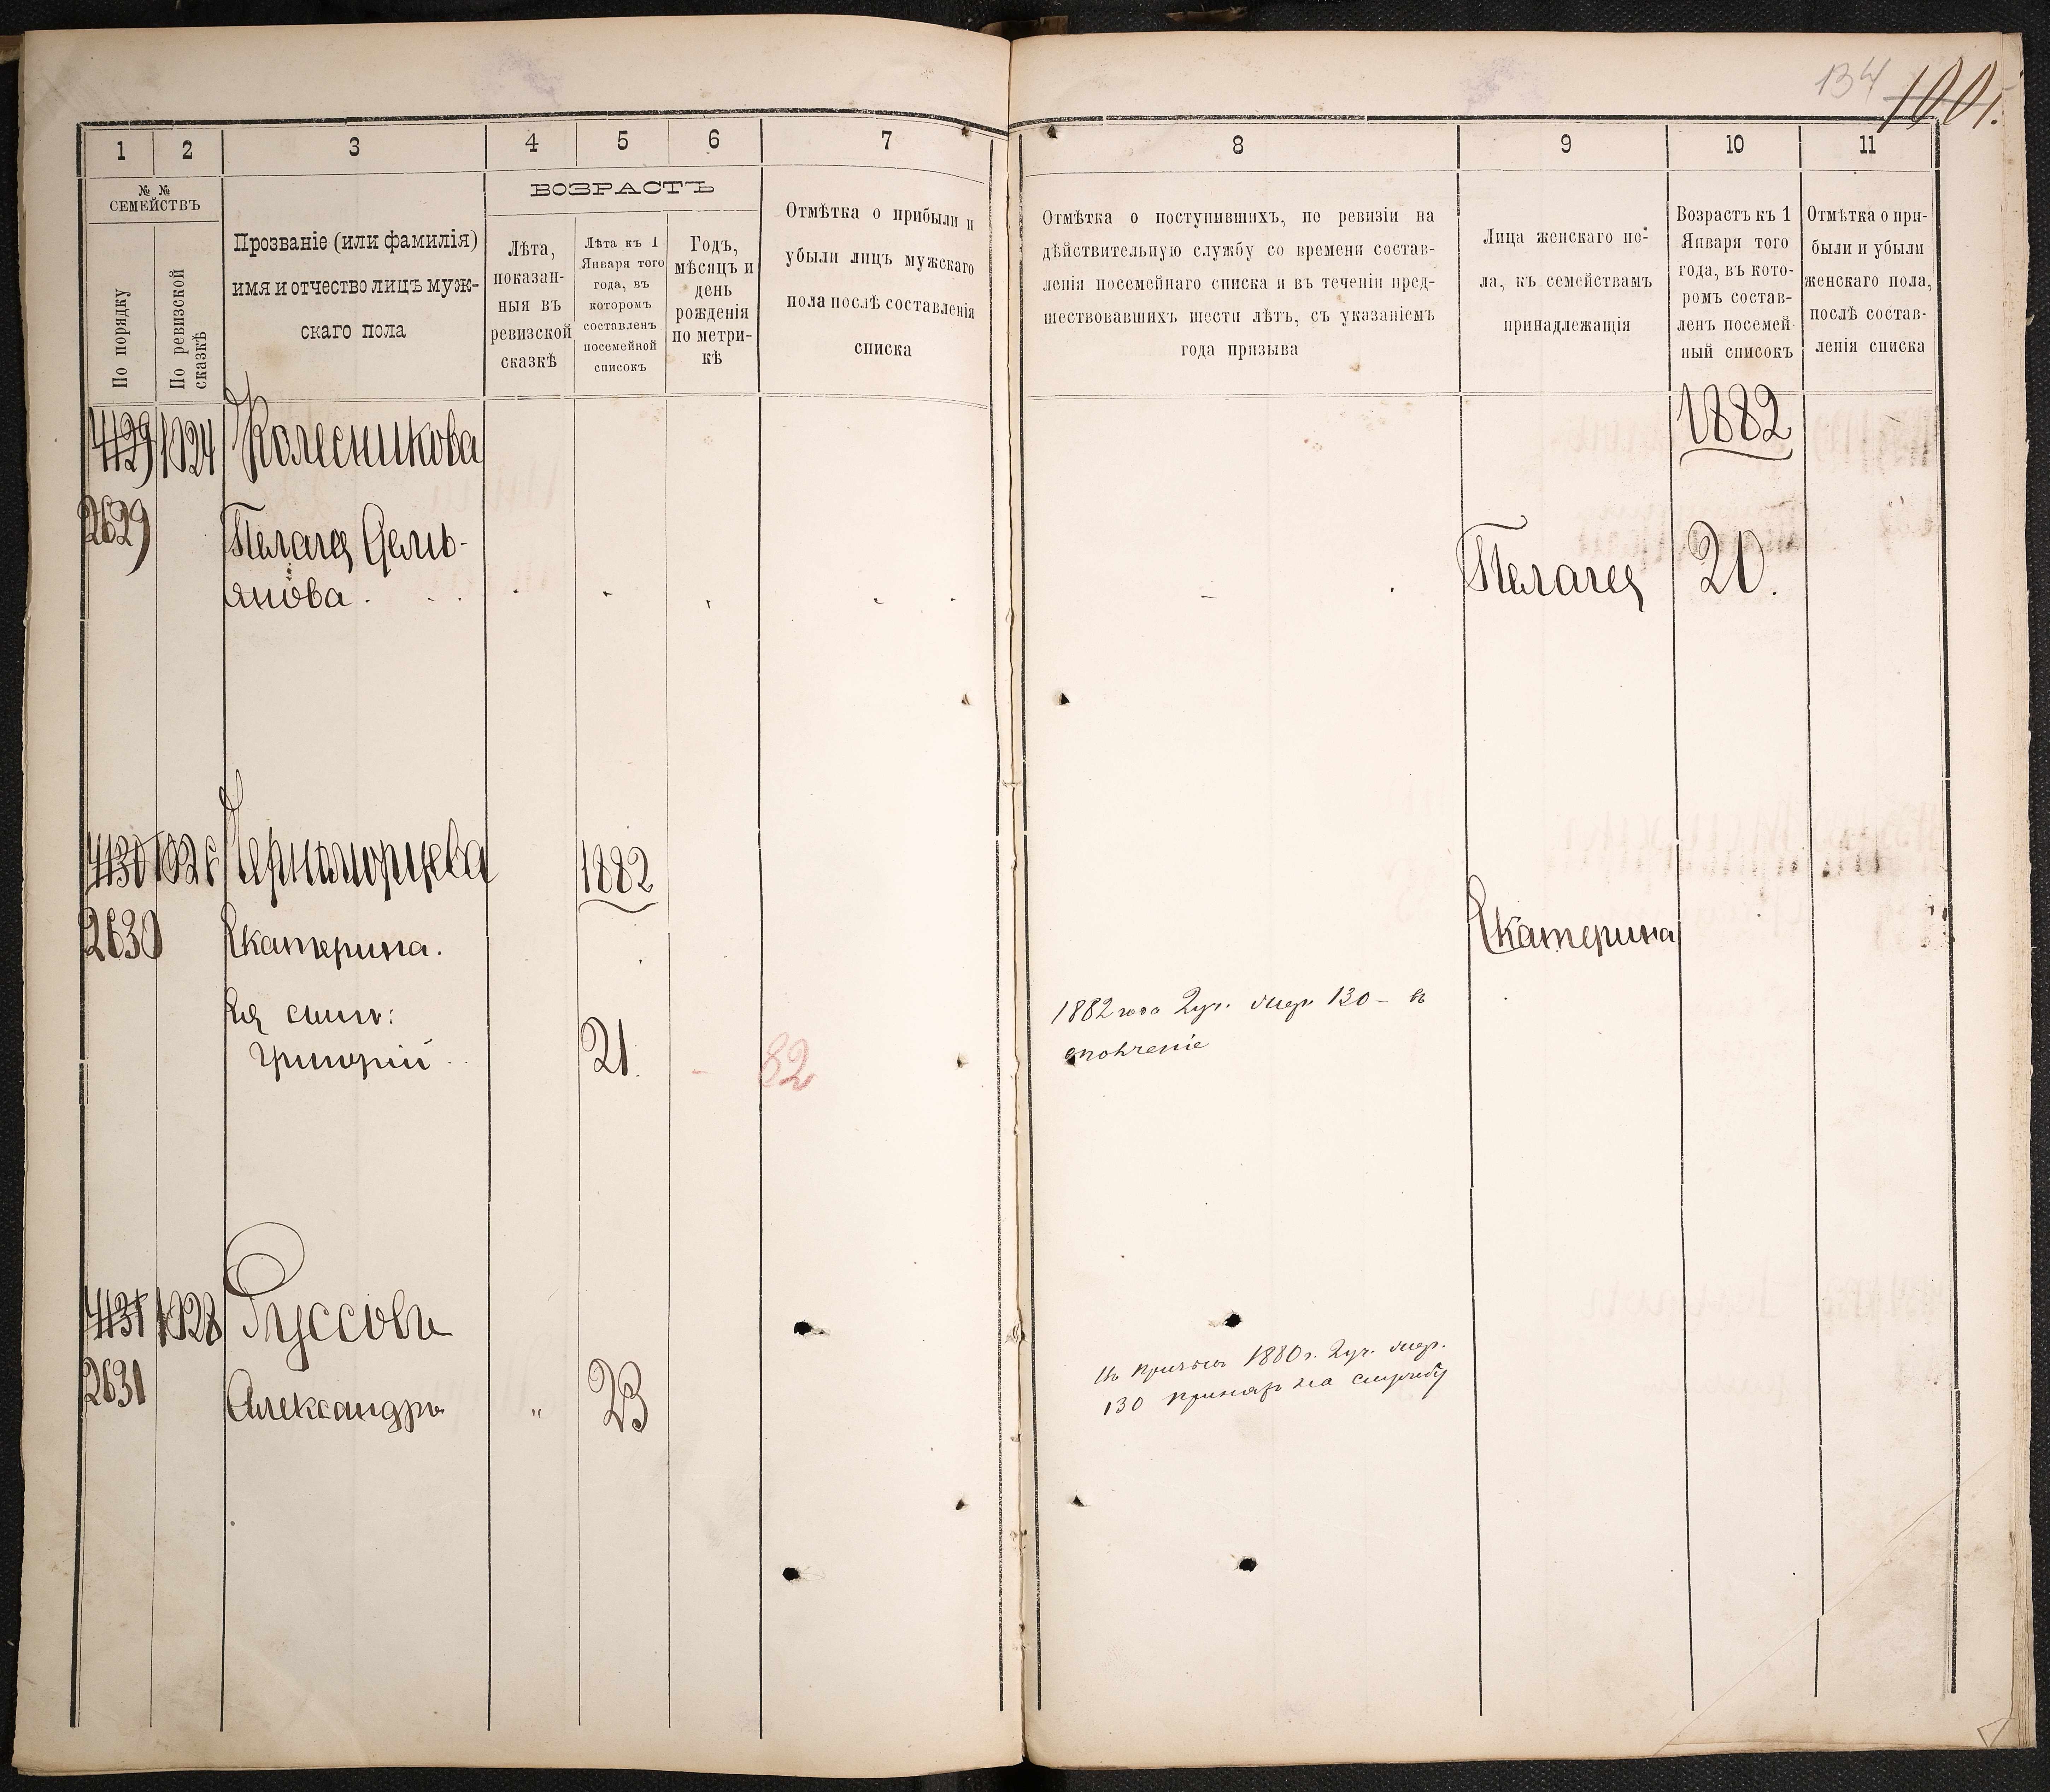 134 1001.
1 2 3 4 5 6 7
№ №
СЕМЕЙСТВЪ
По порядку
По ревизской
сказкѣ
Прозваніе (или фамилія)
имя и отчество лицъ муж-
скаго пола
ВОЗРАСТЪ
Лѣта,
показан-
ныя въ
ревизской
сказкѣ
Лѣта къ 1
Января того
года, въ
которомъ
составленъ
посемейной
списокъ
Годъ,
мѣсяцъ и
день
рожденія
по метри-
кѣ
Отмѣтка о прибыли и
убыли лицъ мужскаго
пола послѣ составленія
списка
4129 1024 Колесникова
2629
Пелагея
янова.
4130 1026 Черноморцева 1882
2630 Екатерина.
Ея сынъ:
Григорій 21. - 82
4131 1028 Руссовъ
2631 Александръ „ 23
8 9 10 11
Отмѣтка о поступившихъ, по ревизіи на
дѣйствительную службу со времени состав-
ленія посемейнаго списка и въ теченіи пред-
шествовавшихъ шести лѣтъ, съ указаніемъ
года призыва
Лица женскаго по-
ла, къ семействамъ
принадлежащія
Возрастъ къ 1
Января того
года, въ кото-
ромъ состав-
ленъ посемей-
ный списокъ
Отмѣтка о при-
были и убыли
женскаго пола,
послѣ состав-
ленія списка
1882
Пелагея 20.
Екатерина
1882 года 2 уч. жер. 130 - в
ополченіе
Въ призывъ 1880 г. 2 уч. жер.
130 принятъ на службу